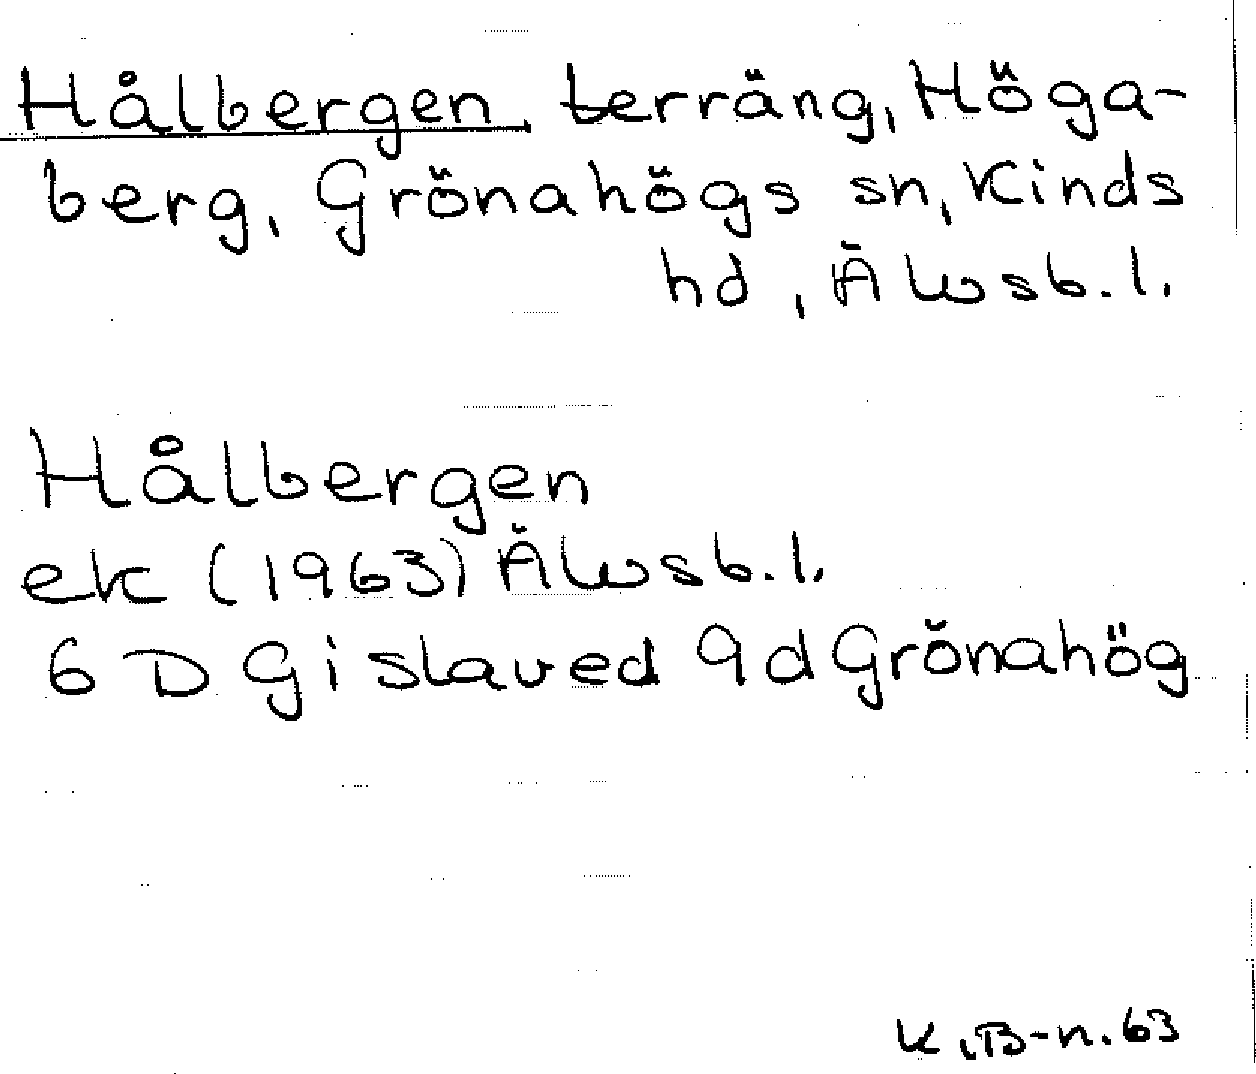 Hålbergen, terräng, Höga-
berg, Grönahögs sn, Kinds
hd, Älvsb.l.
Hålbergen
ek (1963) Älvsb.l.
6 D Gislaved 9d Grönahög
K.B-n.63